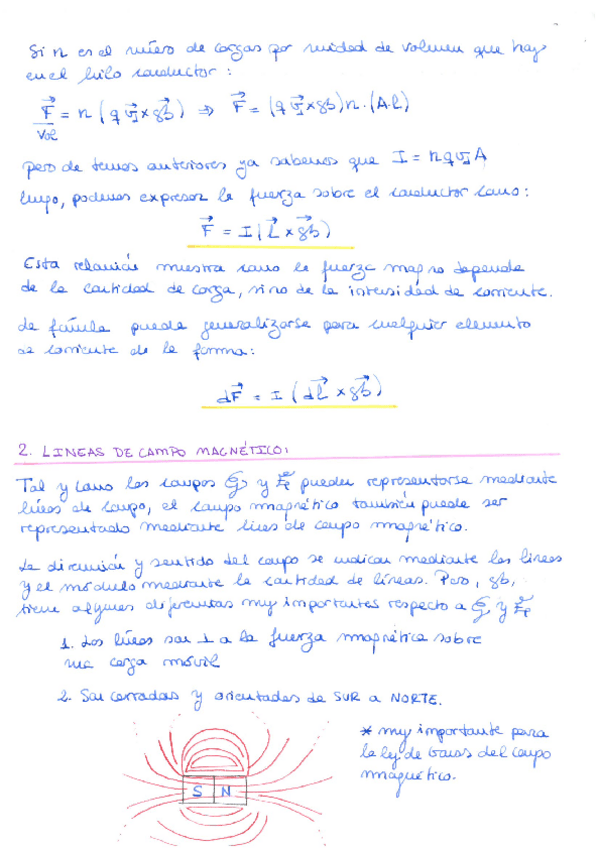 Si n es el número de cargas por unidad de volumen que hay
en el hilo conductor:
F⃗/Vol = n (q v⃗_d × B⃗) ⇒ F⃗ = (q v⃗_d × B⃗) n · (A·L)
pero de temas anteriores ya sabemos que I = n q v_d A
luego, podemos expresar la fuerza sobre el conductor como:
F⃗ = I (L⃗ × B⃗)
Esta relación muestra como la fuerza mag no depende
de la cantidad de carga, sino de la intensidad de corriente.
La fórmula puede generalizarse para cualquier elemento
de corriente de la forma:
dF⃗ = I (dL⃗ × B⃗)
2. LINEAS DE CAMPO MAGNÉTICO:
Tal y como los campos G⃗ y E⃗ pueden representarse mediante
líneas de campo, el campo magnético también puede ser
representado mediante lines de campo magnético.
La dirección y sentido del campo se indican mediante las líneas
y el módulo mediante la cantidad de líneas. Pero, B,
tiene algunas diferencias muy importantes respecto a G⃗ y E⃗
1. Las líneas son ⊥ a la fuerza magnética sobre
una carga móvil
2. Son cerradas y orientadas de SUR a NORTE.
* muy importante para
la ley de Gauss del campo
magnético.
S N